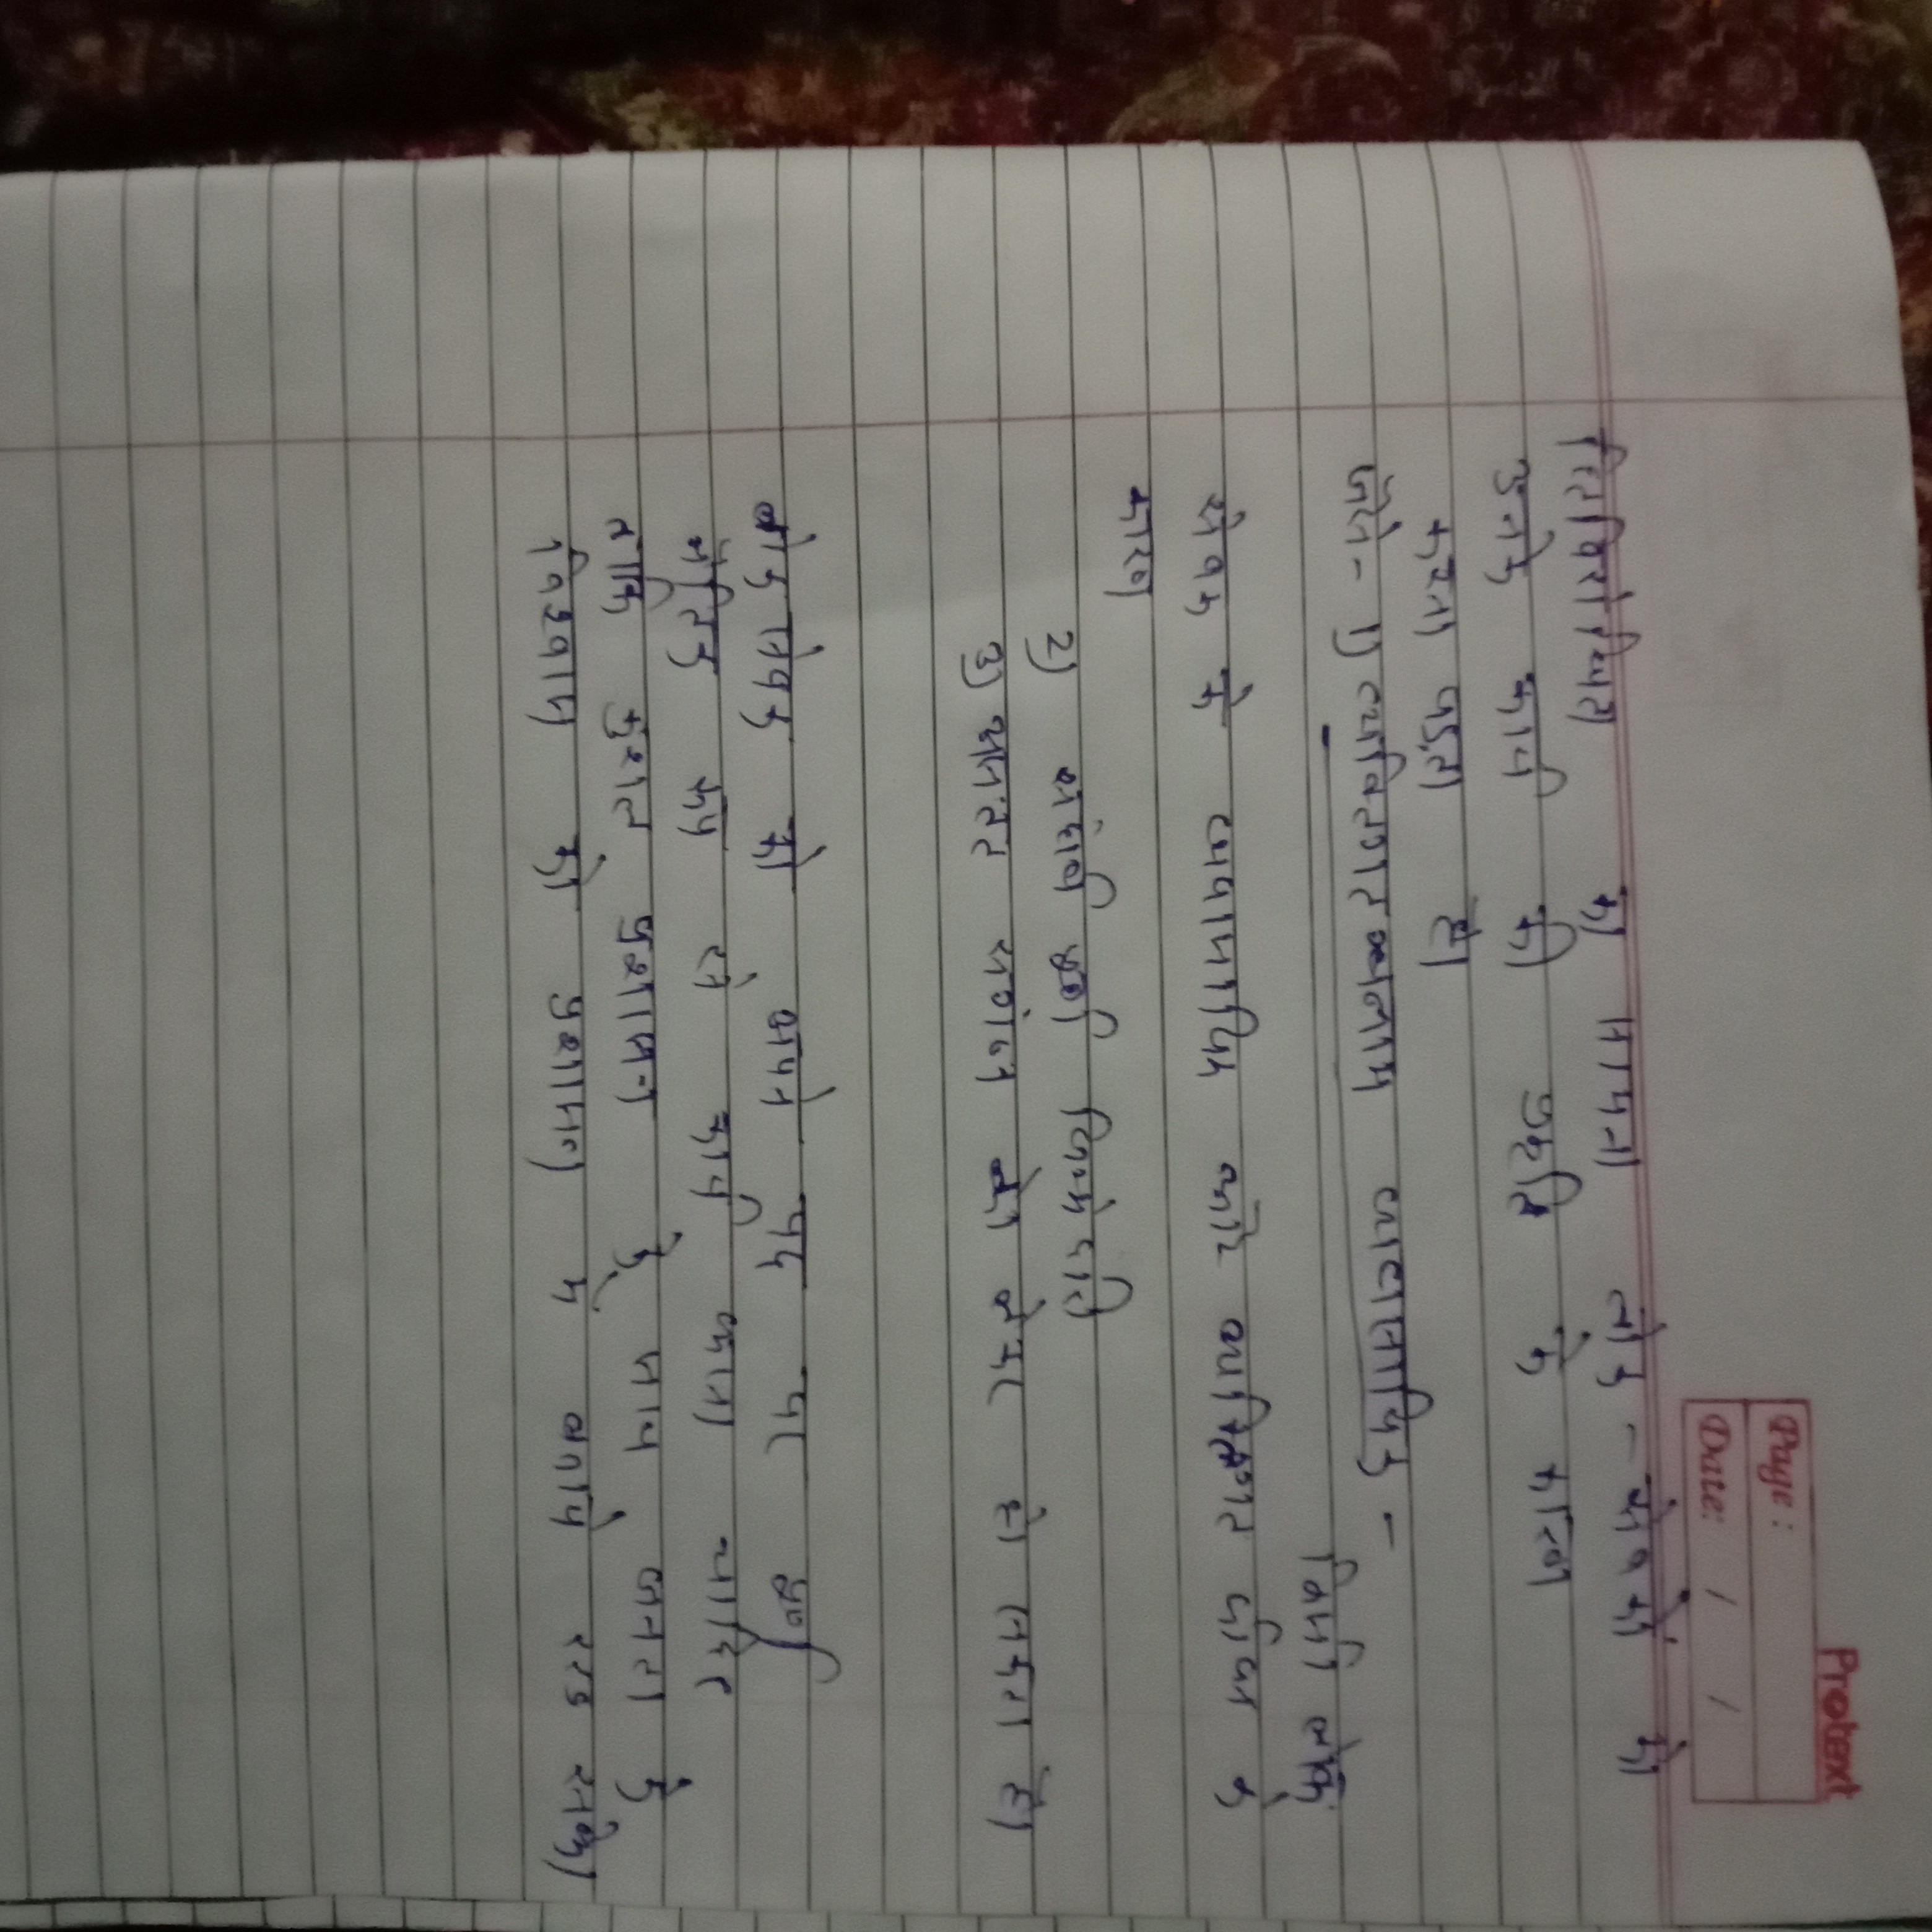 Protext
Page:
Date: / /
हितविरोधियता का सामना लोक - सेवकों को
उनके कार्य की प्रकृति के कारण
करना पड़ता है।
जैसे- 1) व्यक्तिगत बनाम व्यावसायिक -
किसी लोक
सेवक के व्यवसायिक और व्यक्तिगत दोनों के
कारण
2) संबंधी जिम्मेदारी
3) आंतरिक संगठन हो सकता है।
लोक सेवक को अपने पद पर पूर्ण
नैतिक रूप से कार्य करना चाहिए
ताकि कुशल प्रशासन के साथ जनता के
विश्वास को प्रशासन में बनाये रख सके।